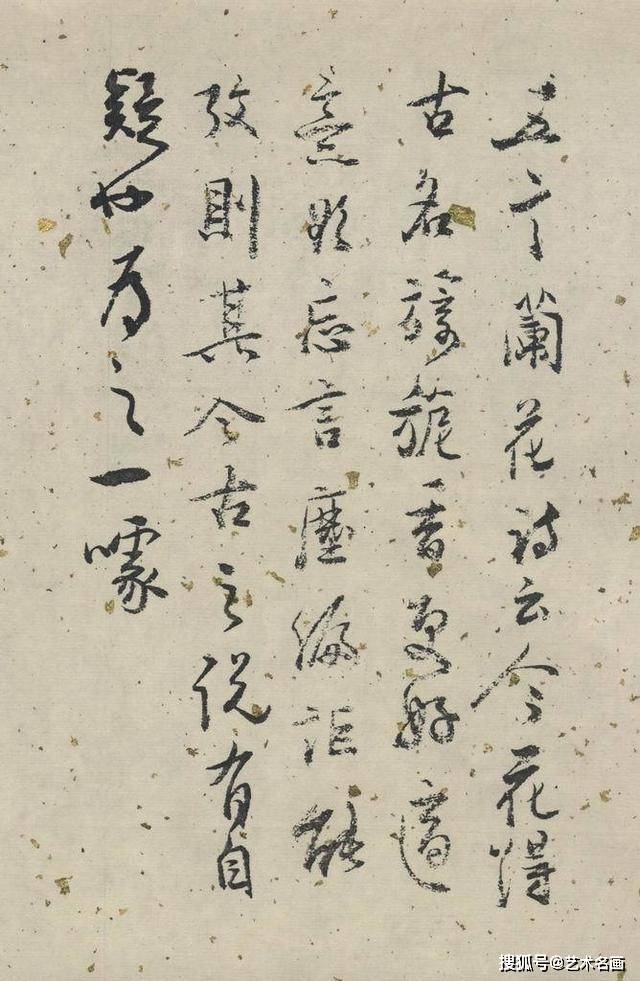 五言蘭花詩云今花得
古名旖旎香更好適
意欲忘言塵編詎能
攷則其今古之說有自
疑也為之一噱
搜狐号@艺术名画